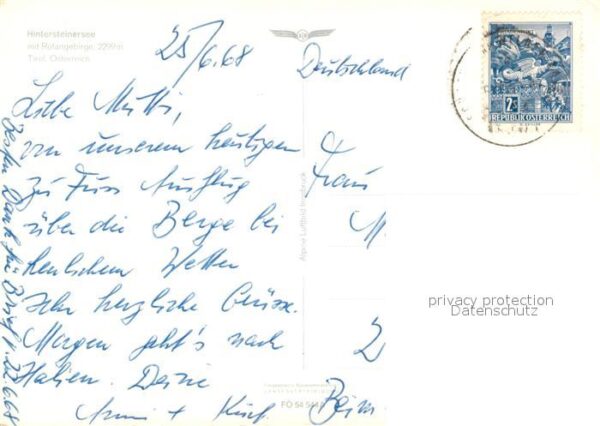 Hintersteinersee
mit Rofangebirge, 2299m
Tirol, Österreich
25/6.68
Deutschland
Liebe Mutti,
von unserem heutigen
zu Fuss Ausflug
über die Berge bei
herrlichem Wetter
sehr herzliche Grüsse.
Morgen geht's nach
Italien. Deine
+ Kurt
Besten Dank für Brief v. 22.6.68
Frau
M
2
Beim
Alpine Luftbild Innsbruck
FÖ 54
2S
REPUBLIK ÖSTERREICH
privacy protection
Datenschutz